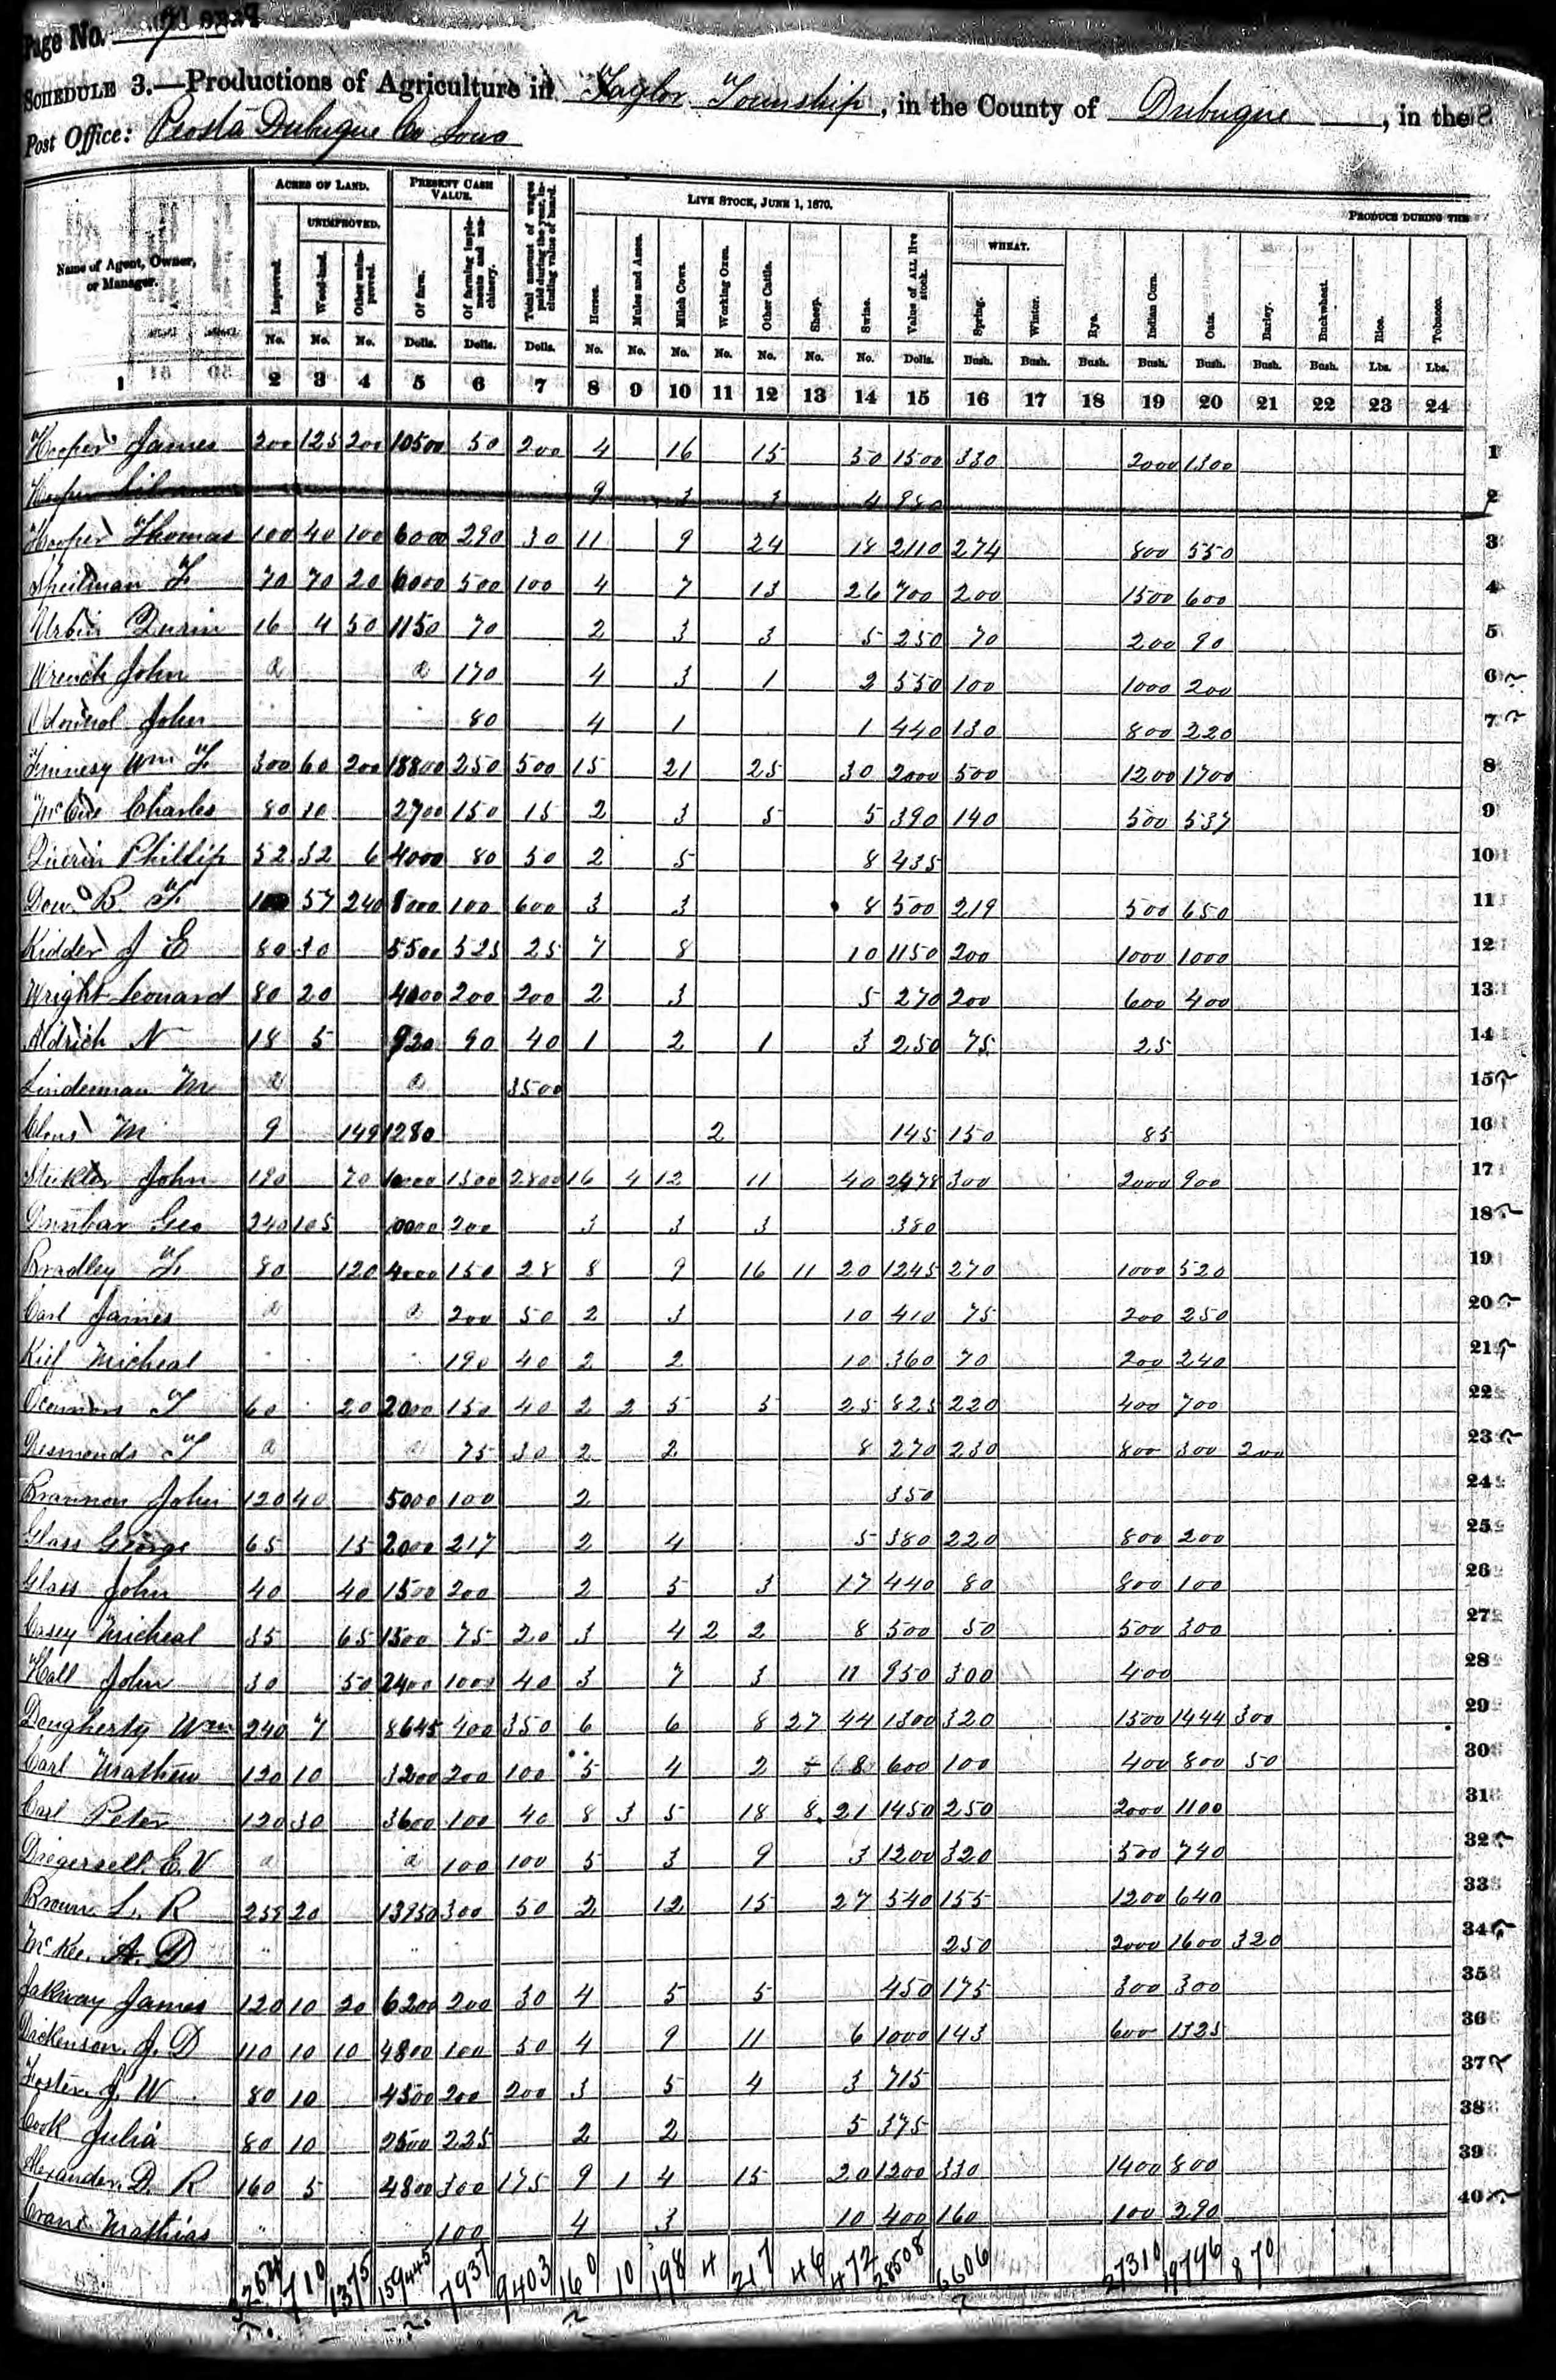 Page No. 9
SCHEDULE 3.—Productions of Agriculture in Taylor Township, in the County of Dubuque, in the S
Post Office: Peosta Dubuque Co Iowa
ACRES OF LAND. PRESENT CASH VALUE. Total amount of wages paid during the year, including value of board. LIVE STOCK, JUNE 1, 1870. PRODUCE DURING THE
UNIMPROVED. WHEAT.
Name of Agent, Owner, or Manager. Improved. Wood-land. Other unimproved. Of farm. Of farming implements and machinery. Horses. Mules and Asses. Milch Cows. Working Oxen. Other Cattle. Sheep. Swine. Value of ALL live stock. Spring. Winter. Rye. Indian Corn. Oats. Barley. Buckwheat. Rice. Tobacco.
No. No. No. Dolls. Dolls. Dolls. No. No. No. No. No. No. No. Dolls. Bush. Bush. Bush. Bush. Bush. Bush. Bush. Lbs. Lbs.
1 2 3 4 5 6 7 8 9 10 11 12 13 14 15 16 17 18 19 20 21 22 23 24
Hooper James 200 125 200 10500 50 200 4 16 15 30 1500 330 2000 1300 1
Hooper 9 3 3 4 980 2
Hooper Thomas 100 40 100 6000 290 30 11 9 24 18 2110 274 800 550 3
Sheilman F. 70 70 20 6000 500 100 4 7 13 26 700 200 1500 600 4
Urbin 16 4 50 1150 70 2 3 3 5 250 70 200 90 5
Wrench John a a 170 4 3 1 2 550 100 1000 200 6
John 80 4 1 1 440 130 800 220 7
Finnesy Wm F. 300 60 200 18800 250 500 15 21 25 30 2000 500 1200 1700 8
McCue Charles 80 10 2700 150 15 2 3 5 5 390 140 500 537 9
Phillip 52 32 6 4000 80 50 2 5 8 435 10
Dow B. F. 100 57 240 8000 100 600 3 3 8 500 219 500 650 11
Kidder J E 80 30 5500 525 25 7 8 10 1150 200 1000 1000 12
Wright Leonard 80 20 4000 200 200 2 3 5 270 200 600 400 13
Aldrich N 18 5 920 90 40 1 2 1 3 250 75 25 14
Linderman M a a 3500 15
M 9 149 1280 2 145 150 85 16
John 190 70 10000 1500 2800 16 4 12 11 40 2478 300 2000 900 17
Dunbar Geo 240 105 200 3 3 3 380 18
Bradley F. 80 120 4000 150 28 8 9 16 11 20 1245 270 1000 520 19
Carl James a a 200 50 2 3 10 410 75 200 250 20
Kief Micheal 190 40 2 2 10 360 70 200 240 21
T 60 20 2000 150 40 2 2 5 5 25 825 220 400 700 22
Desmonds T a a 75 30 2 2 8 270 230 800 300 200 23
Brannon John 120 40 5000 100 2 350 24
Glass George 65 15 2000 217 2 4 5 380 220 800 200 25
Glass John 40 40 1500 200 2 5 3 17 440 80 800 100 26
Casey Micheal 35 65 1500 75 20 3 4 2 2 8 500 50 500 300 27
Hall John 30 50 2400 1000 40 3 7 3 11 950 300 400 28
Dougherty Wm 240 7 8645 400 350 6 6 8 27 44 1300 320 1500 1444 300 29
Carl Mathew 120 10 3200 200 100 5 4 2 8 600 100 400 800 50 30
Carl Peter 120 30 3600 100 40 8 3 5 18 8 21 1450 250 2000 1100 31
E. V a a 100 100 5 3 9 3 1200 320 500 740 32
Brown L. R 259 20 13950 300 50 2 12 15 27 540 155 1200 640 33
McKee A. D " " 250 2000 1600 320 34
Jakway James 120 10 20 6200 200 30 4 5 5 450 175 300 300 35
Dickenson J. D 110 10 10 4800 100 50 4 9 11 6 1000 143 600 1325 36
Foster J W 80 10 4500 200 200 3 5 4 3 715 37
Cook Julia 80 10 2500 225 2 2 5 375 38
Alexander D. R 160 5 4800 300 175 9 1 4 15 20 1200 330 1400 800 39
Crane Mathias " 100 4 3 10 400 160 100 290 40
3254 710 1375 159445 7937 9403 160 10 198 4 217 46 472 28508 6606 27310 19796 870